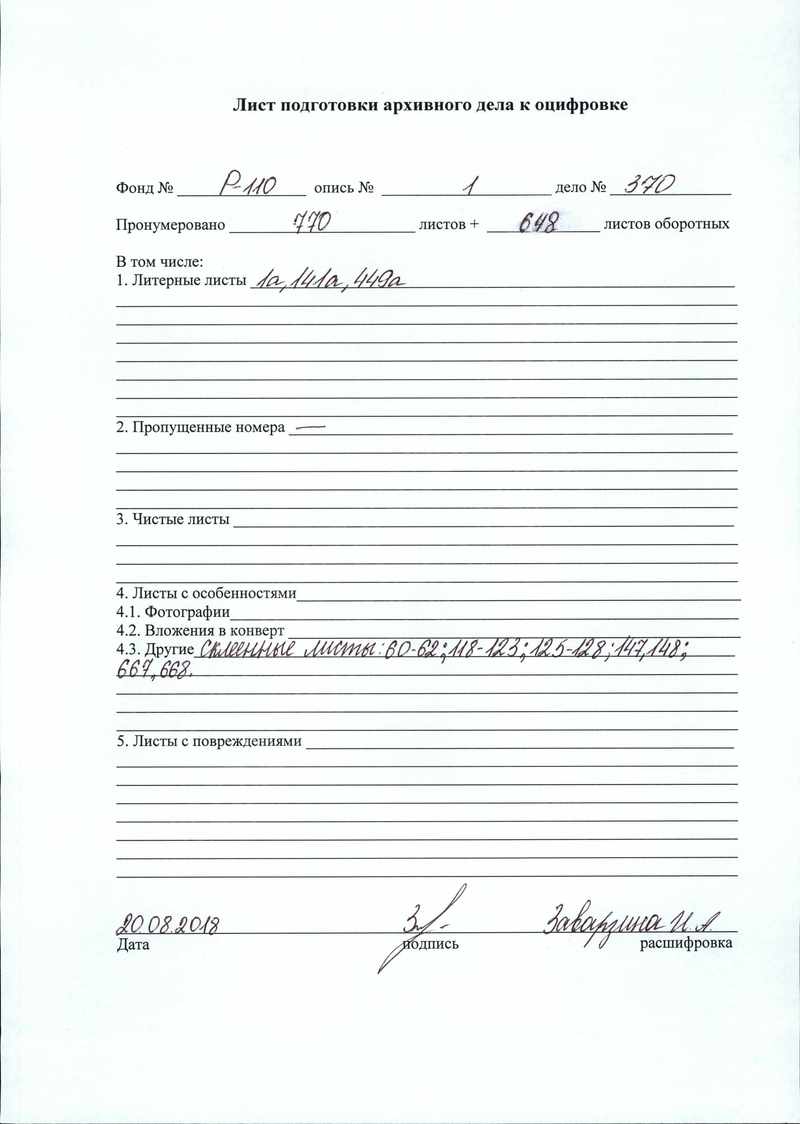 Лист подготовки архивного дела к оцифровке
Фонд № Р-110 опись № 1 дело № 370
Пронумеровано 770 листов + 648 листов оборотных
В том числе:
1. Литерные листы 1а, 141а, 449а
2. Пропущенные номера —
3. Чистые листы
4. Листы с особенностями
4.1. Фотографии
4.2. Вложения в конверт
4.3. Другие Склеенные листы: 60-62; 118-123; 125-128; 147, 148;
667, 668.
5. Листы с повреждениями
20.08.2018 Заварзина И. А.
Дата подпись расшифровка